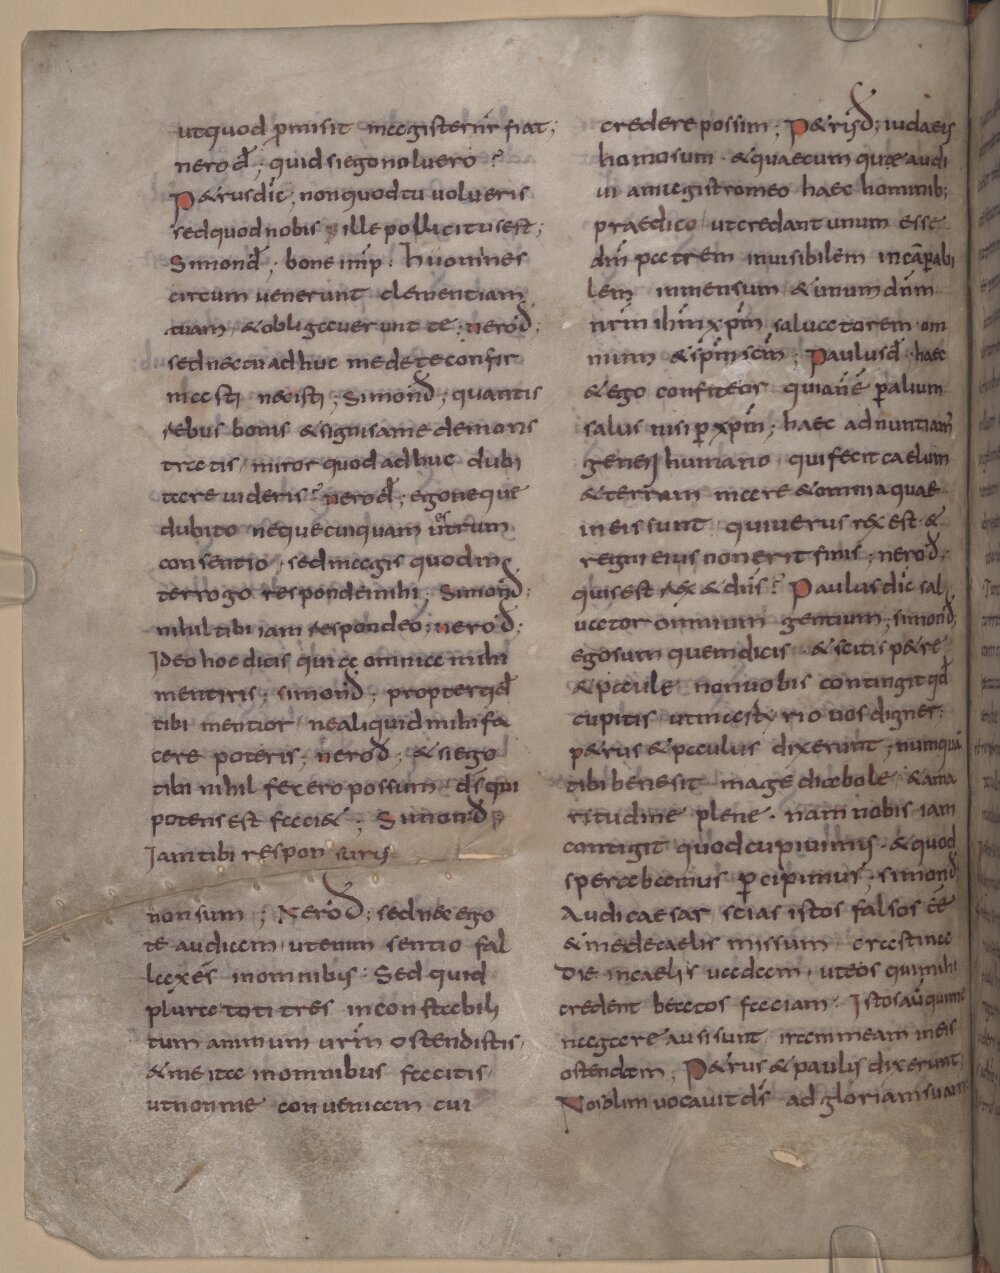 utquod pmisit magisternr̄ fiat;
nerod̄; quidsiegonoluero?
P&rusdic̄; nonquodtu volueris
sedquodnobis ille pollicitusest;
Simond̄; bone imp̄. hiiomines
circum venerunt clementiam
tuam, &obligaverunt te; nerod̄;
sedn&tuadhuc medeteconfir
masti n&isti; simond̄; quantis
rebus bonis &signisamedemons
tratis, miror quodadhuc dubi
tare videris? nerod̄; egoneque
dubito nequecuiquam ur̄estrum
consentio, sedmagis quodin
terrogo respondemihi; Simond̄;
nihiltibiiam respondeo; nerod̄;
Ideo hoc dicis quia omnia mihi
mentiris; simond̄; propterqd̄
tibi mentior, nealiquidmihifa
cere poteris; nerod̄; &siego
tibi nihil fecero possum, ds̄qui
potensest faci&; Simond̄
Iamtibi respon suris
nonsum; Nerod̄; sedn&ego
te audiam, utenim sentio fal
laxes inomnibus. Sed quid
plura toti tres inconstabili
tum animum ur̄m ostendistis,
&me ita inomnibus facitis
utnonme conveniam cui
credere possim; P&rusd̄; iudaeis
homosum. &quaecumquae audi
vi amagistromeo haec hominib;
praedico, utcredantunum esse
dm̄ patrem invisibilem incōparabi
lem inmensum &unumdnm̄
nr̄m ihm̄xpm̄ salvatorem om
nium &spm̄scm̄; Paulusd̄. haec
&ego confiteor quiavē palium
salus nisi pxpm̄; haec adnuntiam̄
generi humano, quifecitcaelum
&terram mare &omnia quae
ineissunt, quiverus rex est &
regni eius nonerit finis; nerod̄;
quisest rex &dn̄s? Paulusdic̄ sal
vator omnium gentium; simond̄;
egosum quemdicis. &scitis p&re
&paule nonvobis contingitqd̄
cupitis utmartyrio vos digner;
p&rus &paulus dixerunt; numquā
tibi benesit mage diabole, &ama
ritudine plene. nam nobis iam
contigit quodcupivimus. &quod
sperabamus pcipimus; simond̄
Audi caesar scias istos falsos cē
&medecaelis missum, crastina
die incaelis vadam, uteos quimihi
credent beatos faciam. Istosaū quime
nagare ausisunt, irammeam ineis
ostendam; P&rus &paulus dixerunt
Nosolim vocavit ds̄ ad gloriamsuam